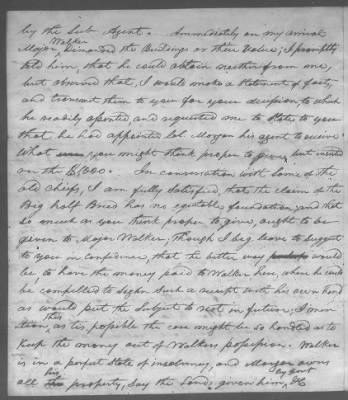 by the Sub Agent. Immediately on my arrival
Major Walker demanded the Buildings or their Value; I promptly
told him, that he could obtain neither from me,
but observed that, I would make a Statement of facts,
and transmit them to you for your decision, to which
he readily assented and requested me to State to you
that he had appointed Col. Morgan his agent to receive
what you might think proper to give, but insisted
on the $1,300. In conversation with some of the
old chiefs, I am fully Satisfied, that the claim of the
Big half Breed has no equitable foundation, and that
so much as you think proper to give, ought to be
given to Major Walker, Though I beg leave to suggest
to you in confidence, that the better way would
be to have the money paid to Walker here, where he could
be compelled to Sign Such a receipt with his own hand
as would put the Subject to rest in future; I men
tion this, as tis possible the case might be so handled as to
Keep the money out of Walkers possession. Walker
is in a perfect State of insolvency, and Morgan owns
all his property, Say the Land, given him by Govt &c